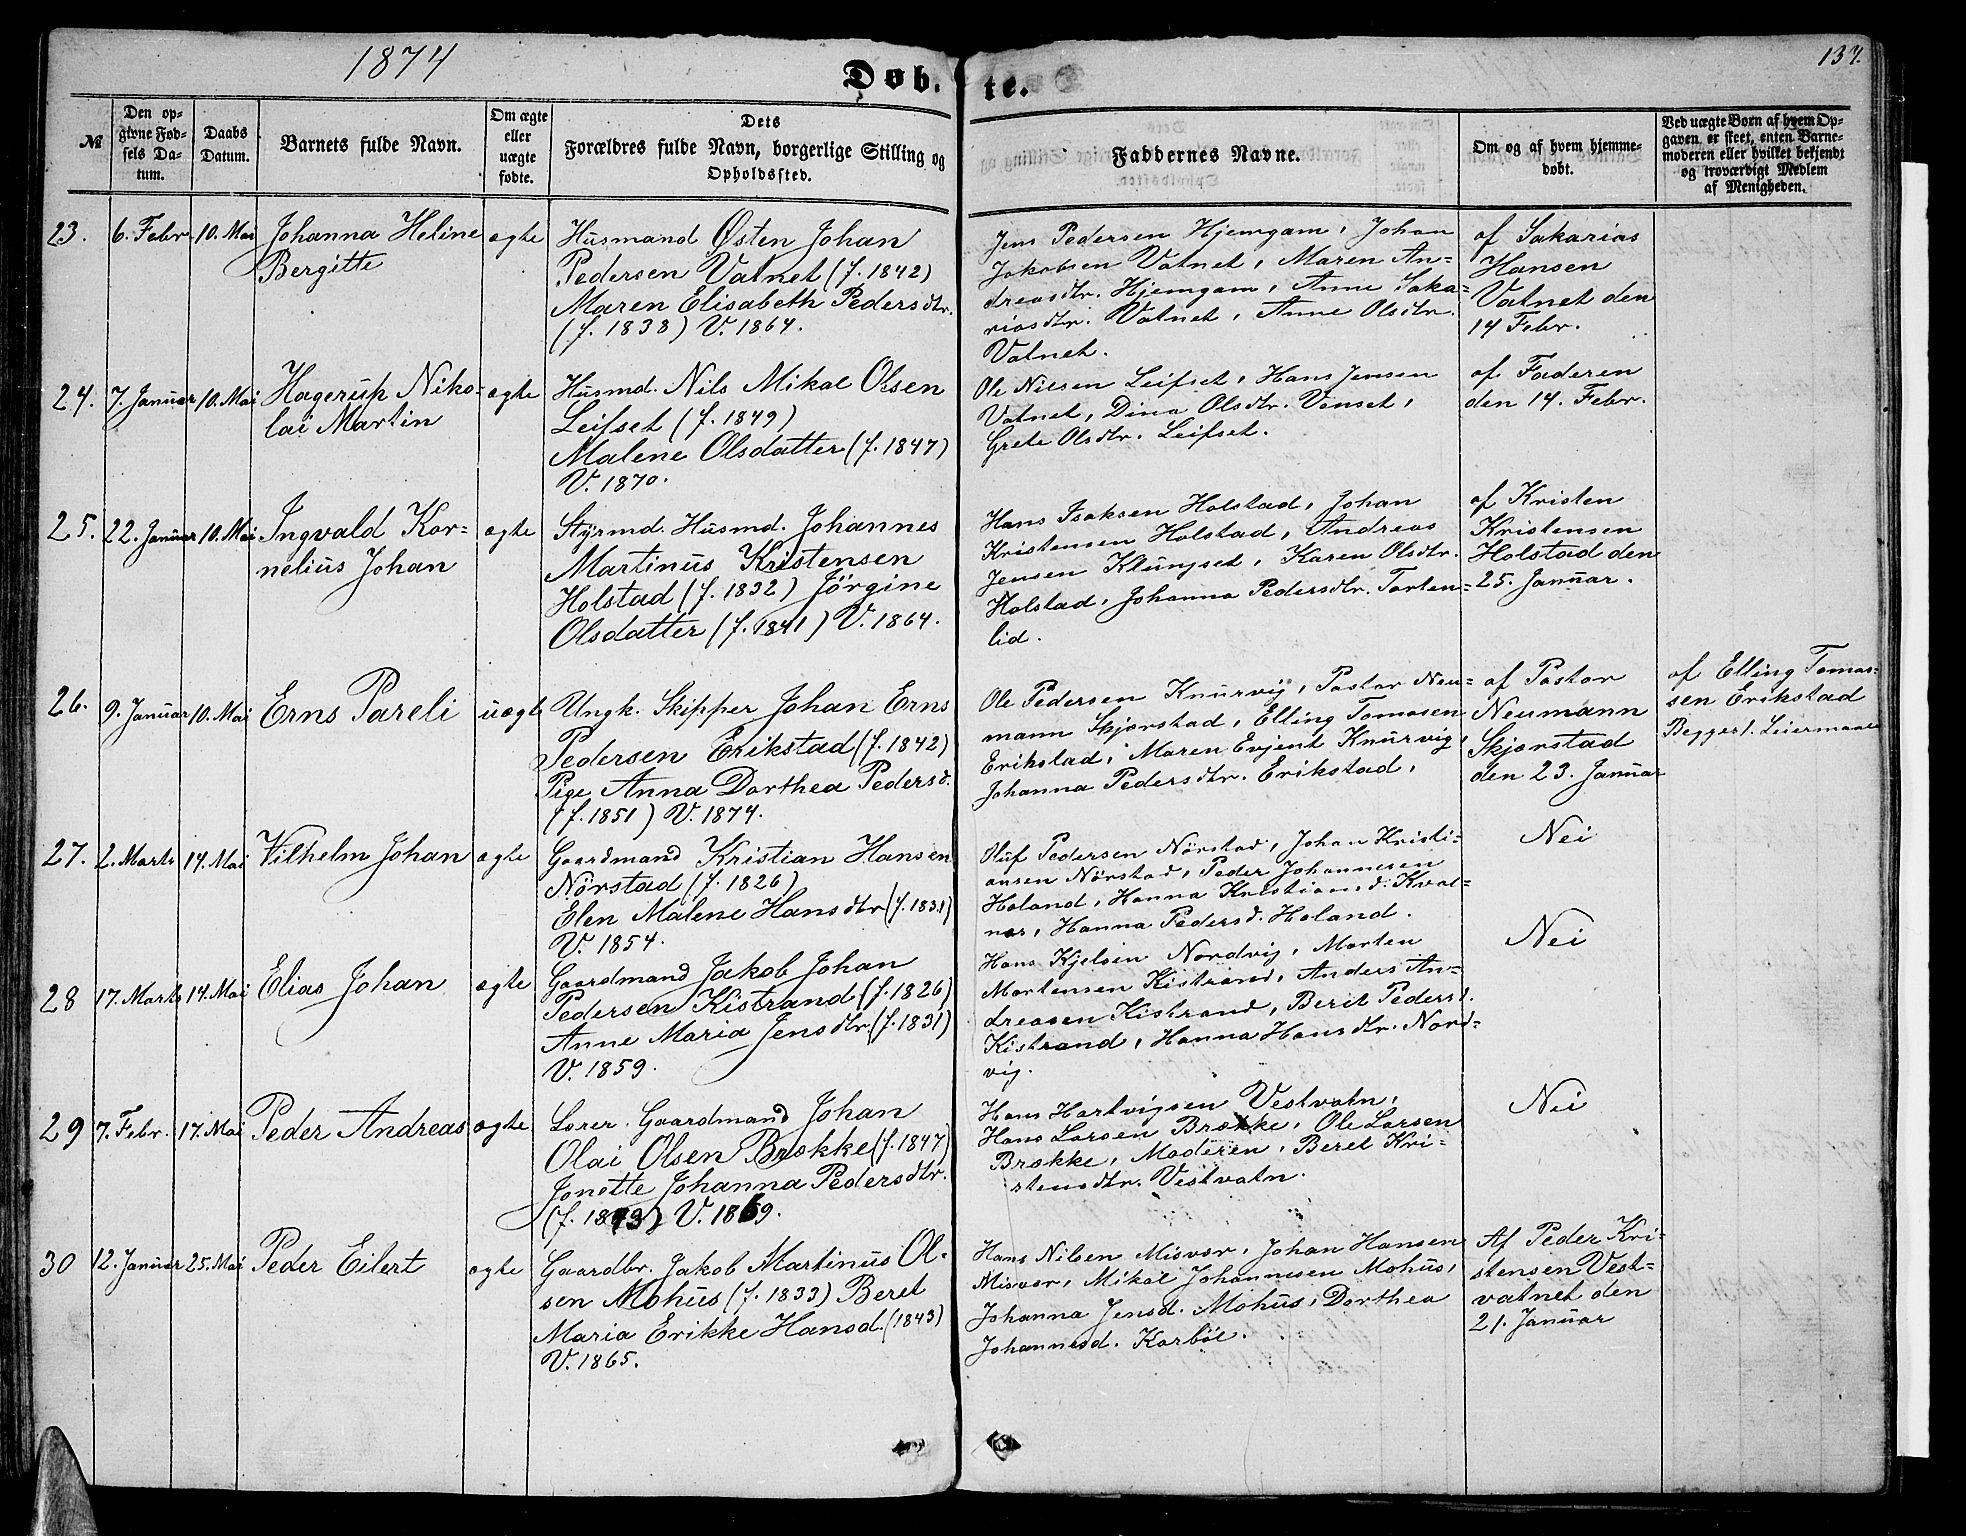 1874
137.
Døb.
te.
№
Den op-
givne Fød-
sels Da-
tum.
Daabs
Datum.
Barnets fulde Navn.
Om ægte
eller
uægte
fødte.
Dets
Forældres fulde Navn, borgerlige Stilling og
Opholdssted.
Faddernes Navne.
Om og af hvem hjemme-
døbt.
Ved uægte Børn af hvem Op-
gaven er skeet, enten Barne-
moderen eller hvilket bekjendt
og troværdigt Medlem
af Menigheden.
23.
6. Febr.
10. Mai
Johanna Heline
Bergitte
ægte
Husmand Østen Johan
Pedersen Vatnet (f. 1842)
Maren Elisabeth Pedersdtr.
(f. 1838) V. 1864.
Jens Pedersen Hjemgam, Johan
Jakobsen Vatnet, Maren An-
dreasdtr. Hjemgam, Anne Saka-
riasdtr. Vatnet, Anne Olsdtr.
Vatnet.
af Sakarias
Hansen
Vatnet den
14 Febr.
24.
7. Januar
10. Mai
Hagerup Niko-
lai Martin
ægte
Husmd. Nils Mikal Olsen
Leifset (f. 1849)
Malene Olsdatter (f. 1847)
V. 1870.
Ole Nilsen Leifset, Hans Jensen
Vatnet, Dina Olsdtr. Venset,
Grete Olsdtr. Leifset.
af Faderen
den 14. Febr.
25.
22. Januar
10. Mai
Ingvald Kor-
nelius Johan
ægte
Styrmd. Husmd. Johannes
Martinus Kristensen
Holstad (f. 1832) Jörgine
Olsdatter (f. 1841) V. 1864.
Hans Isaksen Holstad, Johan
Kristensen Holstad, Andreas
Jensen Klungset, Karen Olsdtr.
Holstad, Johanna Pedersdtr. Torten-
lid.
af Kristen
Kristensen
Holstad den
25. Januar.
26.
9. Januar
10. Mai
Erns Pareli
uægte
Ungk. Skipper Johan Erns
Pedersen Erikstad (f. 1842)
Pige Anna Dorthea Pedersd.
(f. 1851) V. 1874.
Ole Pedersen Knurvig, Pastor Neu-
mann Skjærstad, Elling Tomasen
Erikstad, Maren Evjent Knurvig,
Johanna Pedersdtr. Erikstad,
af Pastor
Neumann
Skjærstad
den 23. Januar
af Elling Tomas-
sen Erikstad
Begges 1. Leiermaal
27.
2. Marts
14. Mai
Vilhelm Johan
ægte
Gaardmand Kristian Hansen
Nörstad (f. 1826)
Elen Malene Hansdtr (f. 1831)
V. 1854.
Oluf Pedersen Nörstad, Johan Kristi-
ansen Nörstad, Peder Johannesen
Holand, Hanna Kristiansd. Kval-
nes, Hanna Pedersd. Holand.
Nei
28
17. Marts
14. Mai
Elias Johan
ægte
Gaardmand Jakob Johan
Pedersen Kistrand (f. 1826)
Anne Maria Jensdtr. (f. 1831)
V. 1859.
Hans Kjelsen Nordvig, Morten
Mortensen Kistrand, Anders An-
dreasen Kistrand, Berit Pedersd.
Kistrand, Hanna Hansdtr. Nord-
vig.
Nei
29
7. Febr.
17. Mai
Peder Andreas
ægte
Lærer. Gaardmand Johan
Olai Olsen Brække (f. 1847)
Jonette Johanna Pedersdtr.
(f. 1843) V. 1869.
Hans Hartvigsen Vestvatn,
Hans Larsen Brække, Ole Larsen
Brække, Moderen, Beret Kri-
stensdtr. Vestvatn.
Nei
30
12. Januar
25. Mai
Peder Eilert
ægte
Gaardbr. Jakob Martinus Ol-
sen Mohus (f. 1833) Beret
Maria Erikke Hansd. (1843)
V. 1865.
Hans Nilsen Misvær, Johan Hansen
Misvær, Mikal Johannesen Mohus,
Johanna Jensd. Mohus, Dorthea
Johannesd. Karbøl.
Af Peder Kri-
stensen Vest-
vatnet den
21. Januar